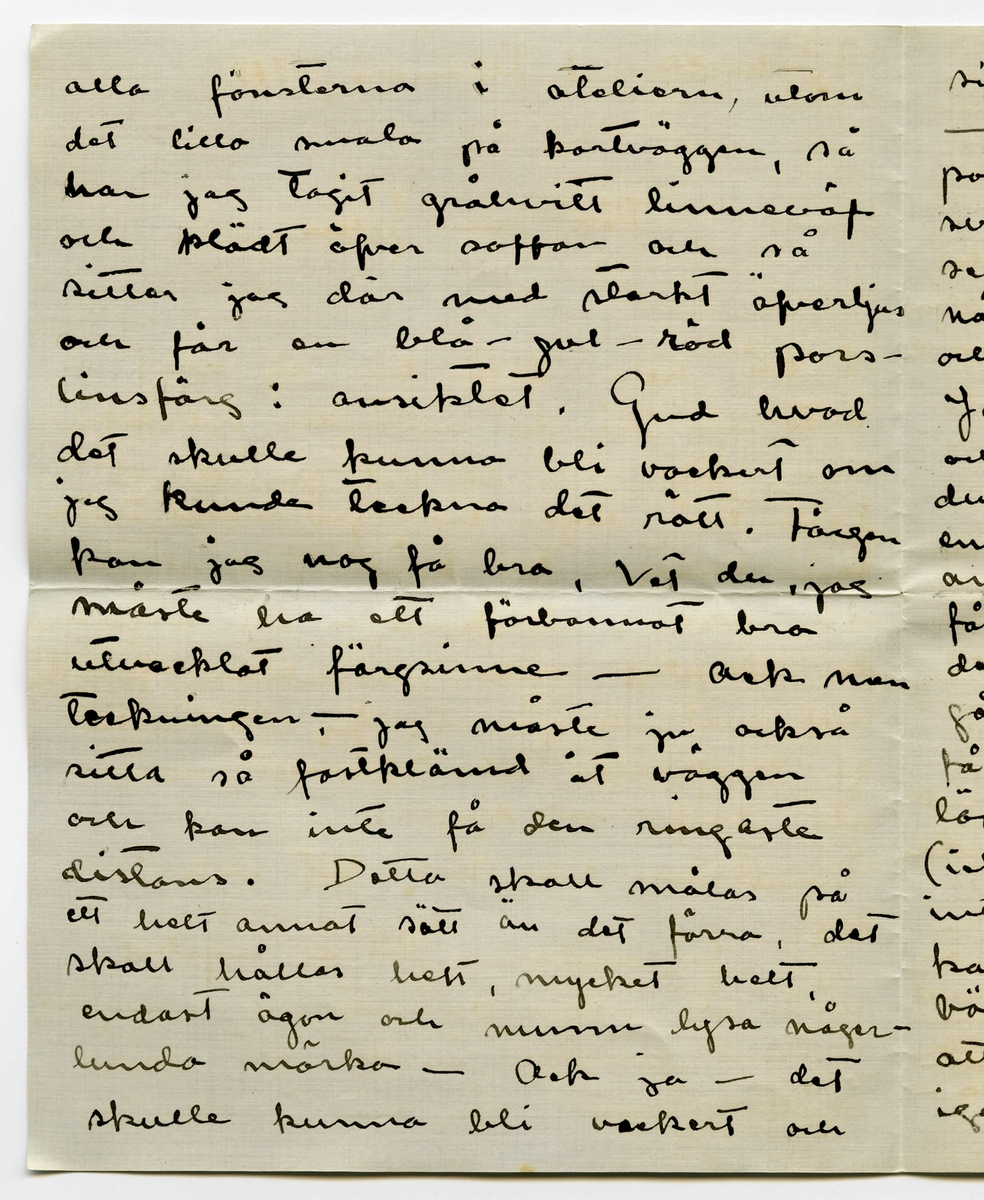 alla fönsterna i ateliern, utom
det lilla smala på kortväggen, så
har jag tagit gråhvitt linneväf
och klädt öfver soffan och så
sitter jag där med starkt öfverljus
och får en blå – gul – röd pors-
linsfärg i ansiktet. Gud hvad
det skulle kunna bli vackert om
jag kunde teckna det rätt. Färgen
kan jag nog få bra, Vet du, jag
måste ha ett förbannat bra
utvecklat färgsinne — Ack men
teckningen, – jag måste ju också
sitta så fastklämd åt väggen
och kan inte få den ringaste
distans. Detta skall målas på
ett helt annat sätt än det förra, det
skall hållas helt, mycket helt,
endast ögon och munn lysa någor-
lunda mörka — Ack ja — det
skulle kunna bli vackert och